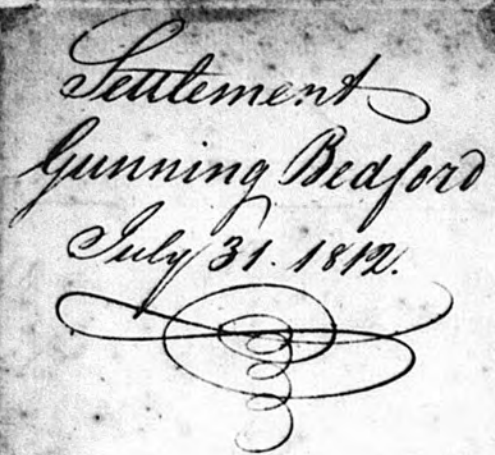 Settlement
Gunning Bedford
July 31. 1812.